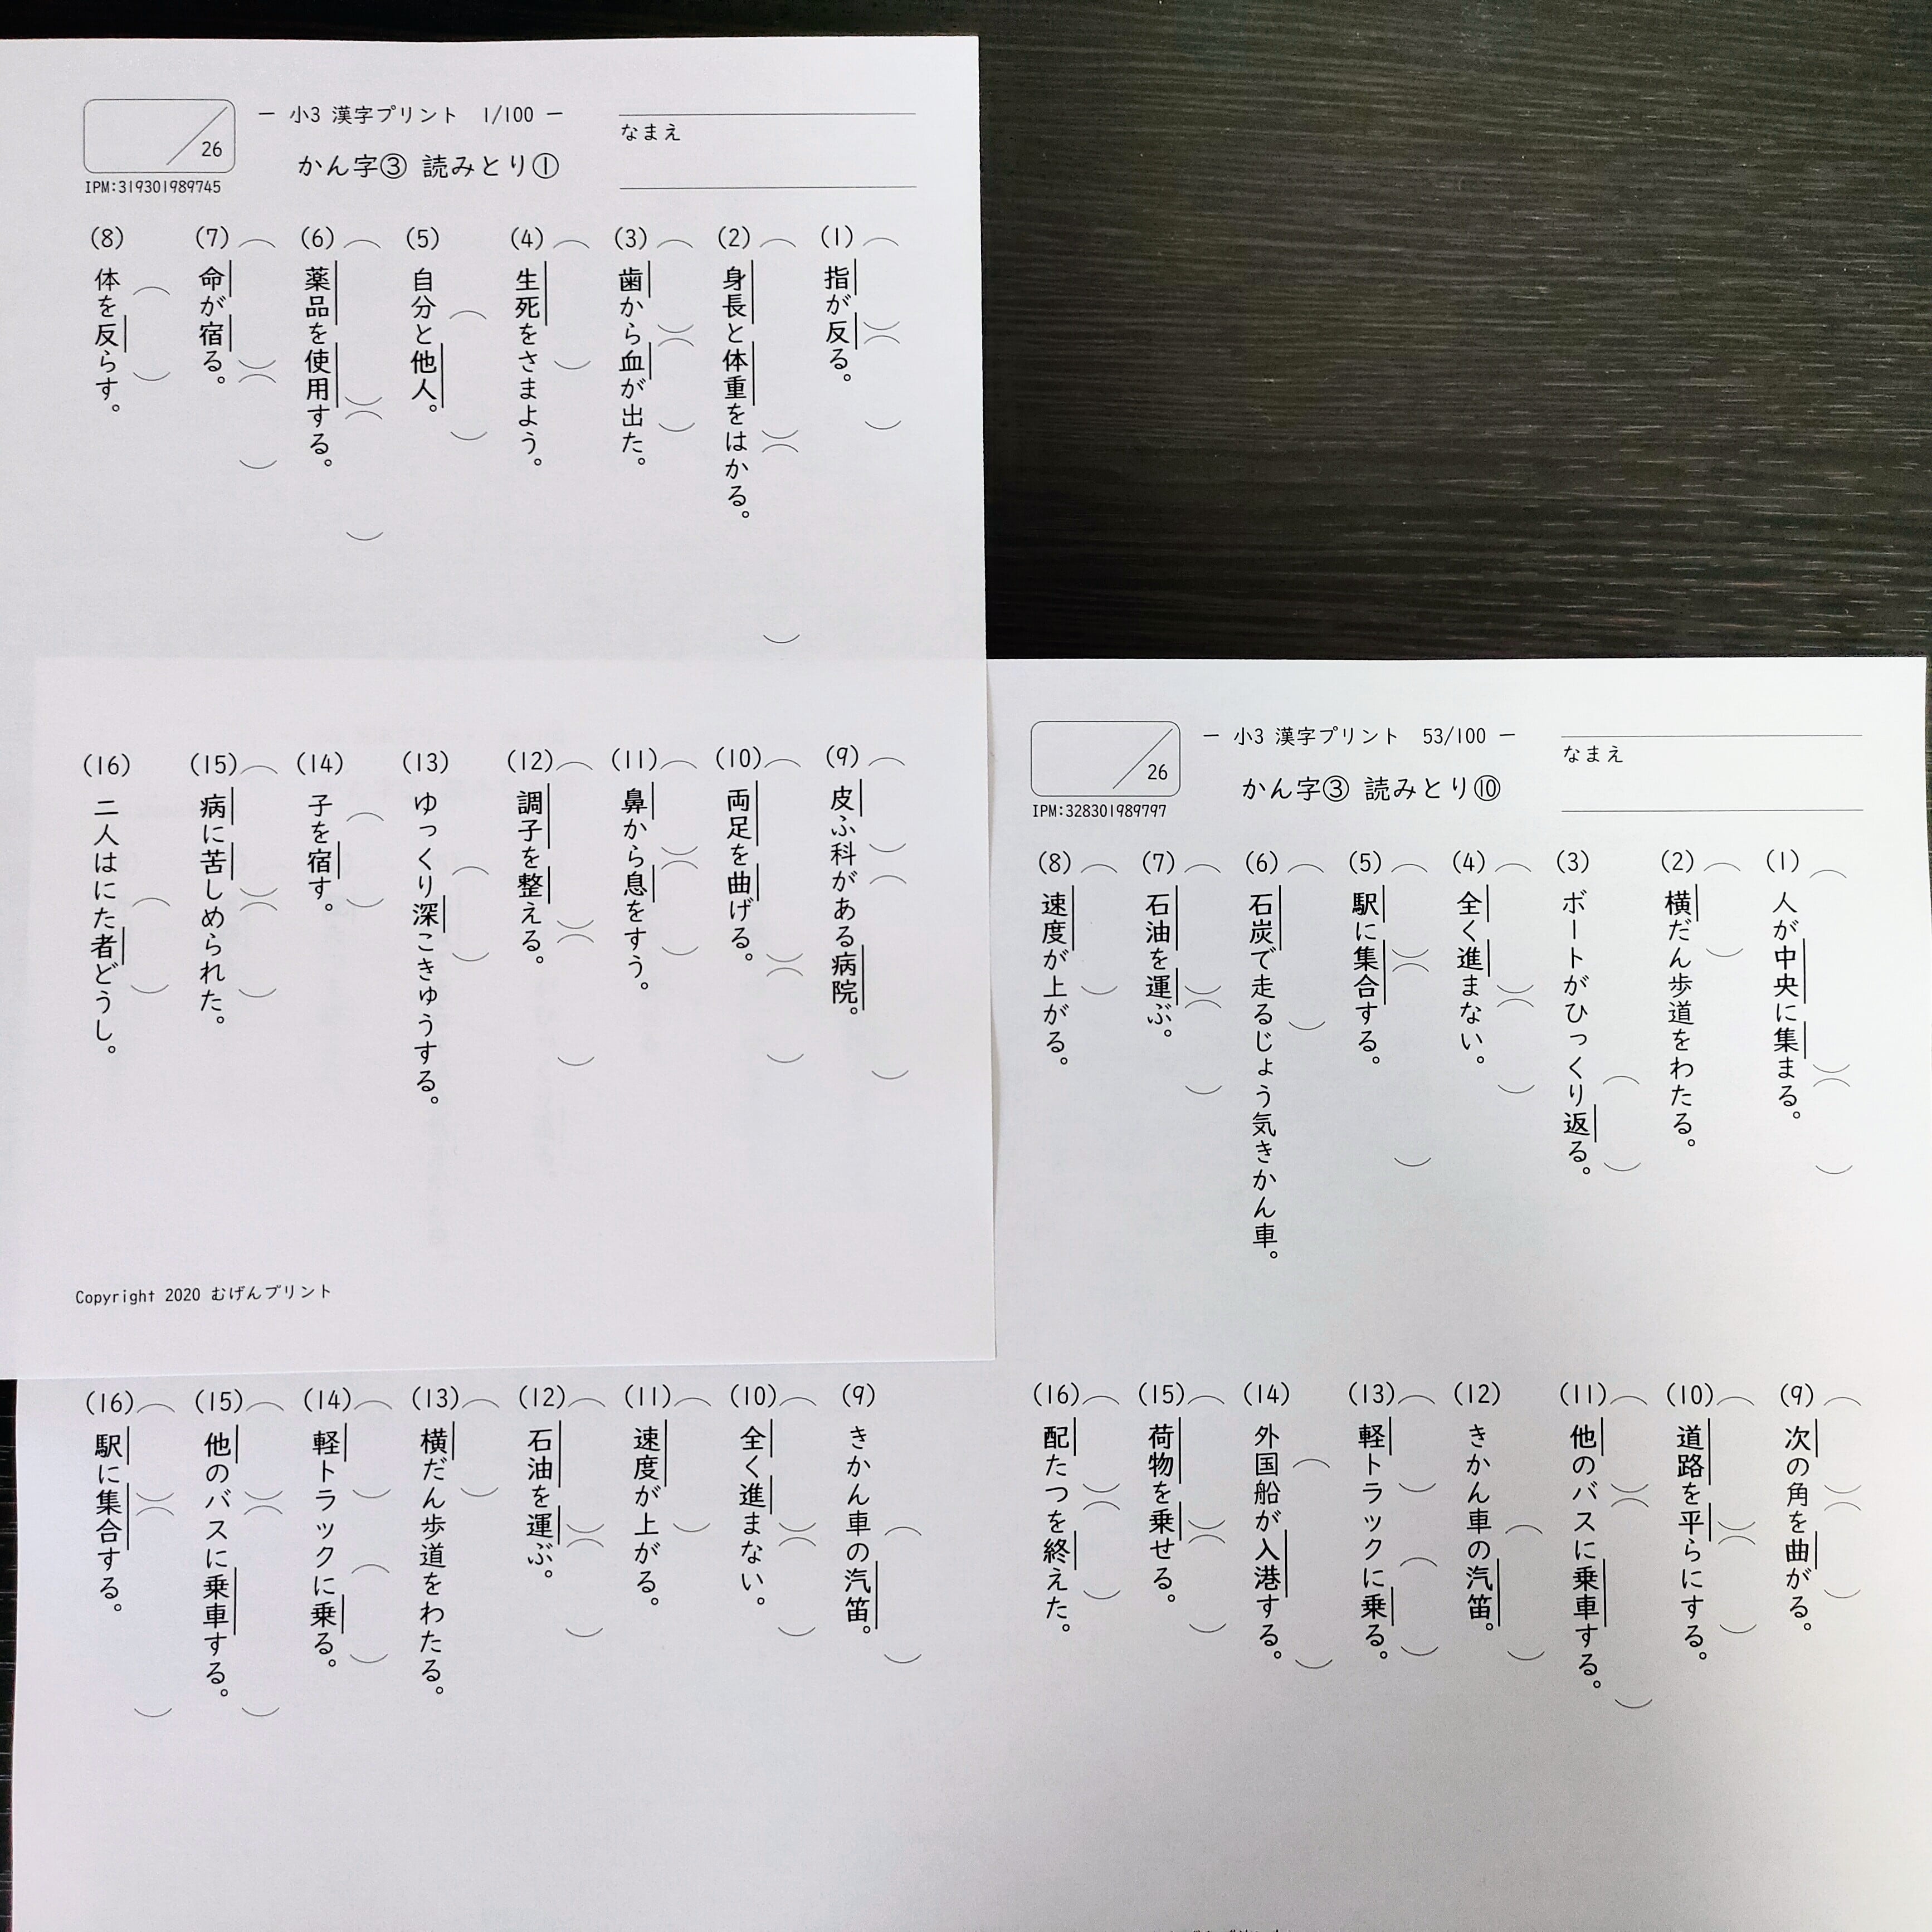 — 小3 漢字プリント 1/100 —
かん字③ 読みとり①
なまえ
26
IPM:319301989745
(1) 指が反る。
(2) 身長と体重をはかる。
(3) 歯から血が出た。
(4) 生死をさまよう。
(5) 自分と他人。
(6) 薬品を使用する。
(7) 命が宿る。
(8) 体を反らす。
(9) 皮ふ科がある病院。
(10) 両足を曲げる。
(11) 鼻から息をすう。
(12) 調子を整える。
(13) ゆっくり深こきゅうする。
(14) 子を宿す。
(15) 病に苦しめられた。
(16) 二人はにた者どうし。
Copyright 2020 むげんプリント
— 小3 漢字プリント 53/100 —
かん字③ 読みとり⑩
なまえ
26
IPM:328301989797
(1) 人が中央に集まる。
(2) 横だん歩道をわたる。
(3) ボートがひっくり返る。
(4) 全く進まない。
(5) 駅に集合する。
(6) 石炭で走るじょう気きかん車。
(7) 石油を運ぶ。
(8) 速度が上がる。
(9) 次の角を曲がる。
(10) 道路を平らにする。
(11) 他のバスに乗車する。
(12) きかん車の汽笛。
(13) 軽トラックに乗る。
(14) 外国船が入港する。
(15) 荷物を乗せる。
(16) 配たつを終えた。
(9) きかん車の汽笛。
(10) 全く進まない。
(11) 速度が上がる。
(12) 石油を運ぶ。
(13) 横だん歩道をわたる。
(14) 軽トラックに乗る。
(15) 他のバスに乗車する。
(16) 駅に集合する。